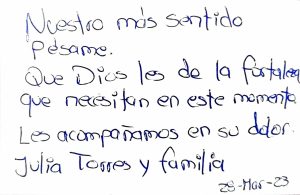 Nuestro más sentido
pésame.
Que Dios les de la fortaleza
que necesitan en este momento
Les acompañamos en su dolor.
Julia Torres y familia
28-Mar-23